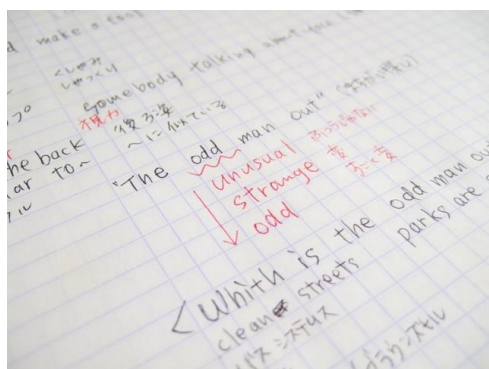 make a fool
くしゃみ
しゃっくり
Somebody talking about you
視力
後ろ姿
～に似ている
the back
lar to～
"The odd man out" (まちがい探し)
unusual ふつうじゃない
strange 変
odd すごく変
<Whith is the odd man out
clean streets parks are
バス システム